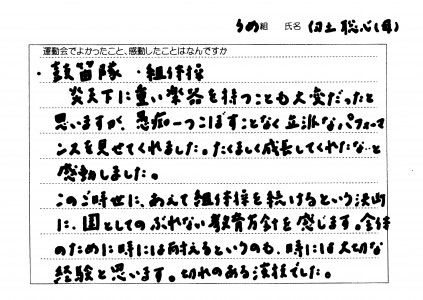 うめ組 氏名
運動会でよかったこと、感動したことはなんですか
・鼓笛隊 ・組体操
炎天下に重い楽器を持つことも大変だったと
思いますが、愚痴一つこぼすことなく立派なパフォーマ
ンスを見せてくれました。たくましく成長してくれたな…と
感動しました。
このご時世に、あえて組体操を続けるという決断
に、園としてのぶれない教育方針を感じます。全体
のために時には耐えるというのも、時には大切な
経験と思います。切れのある演技でした。